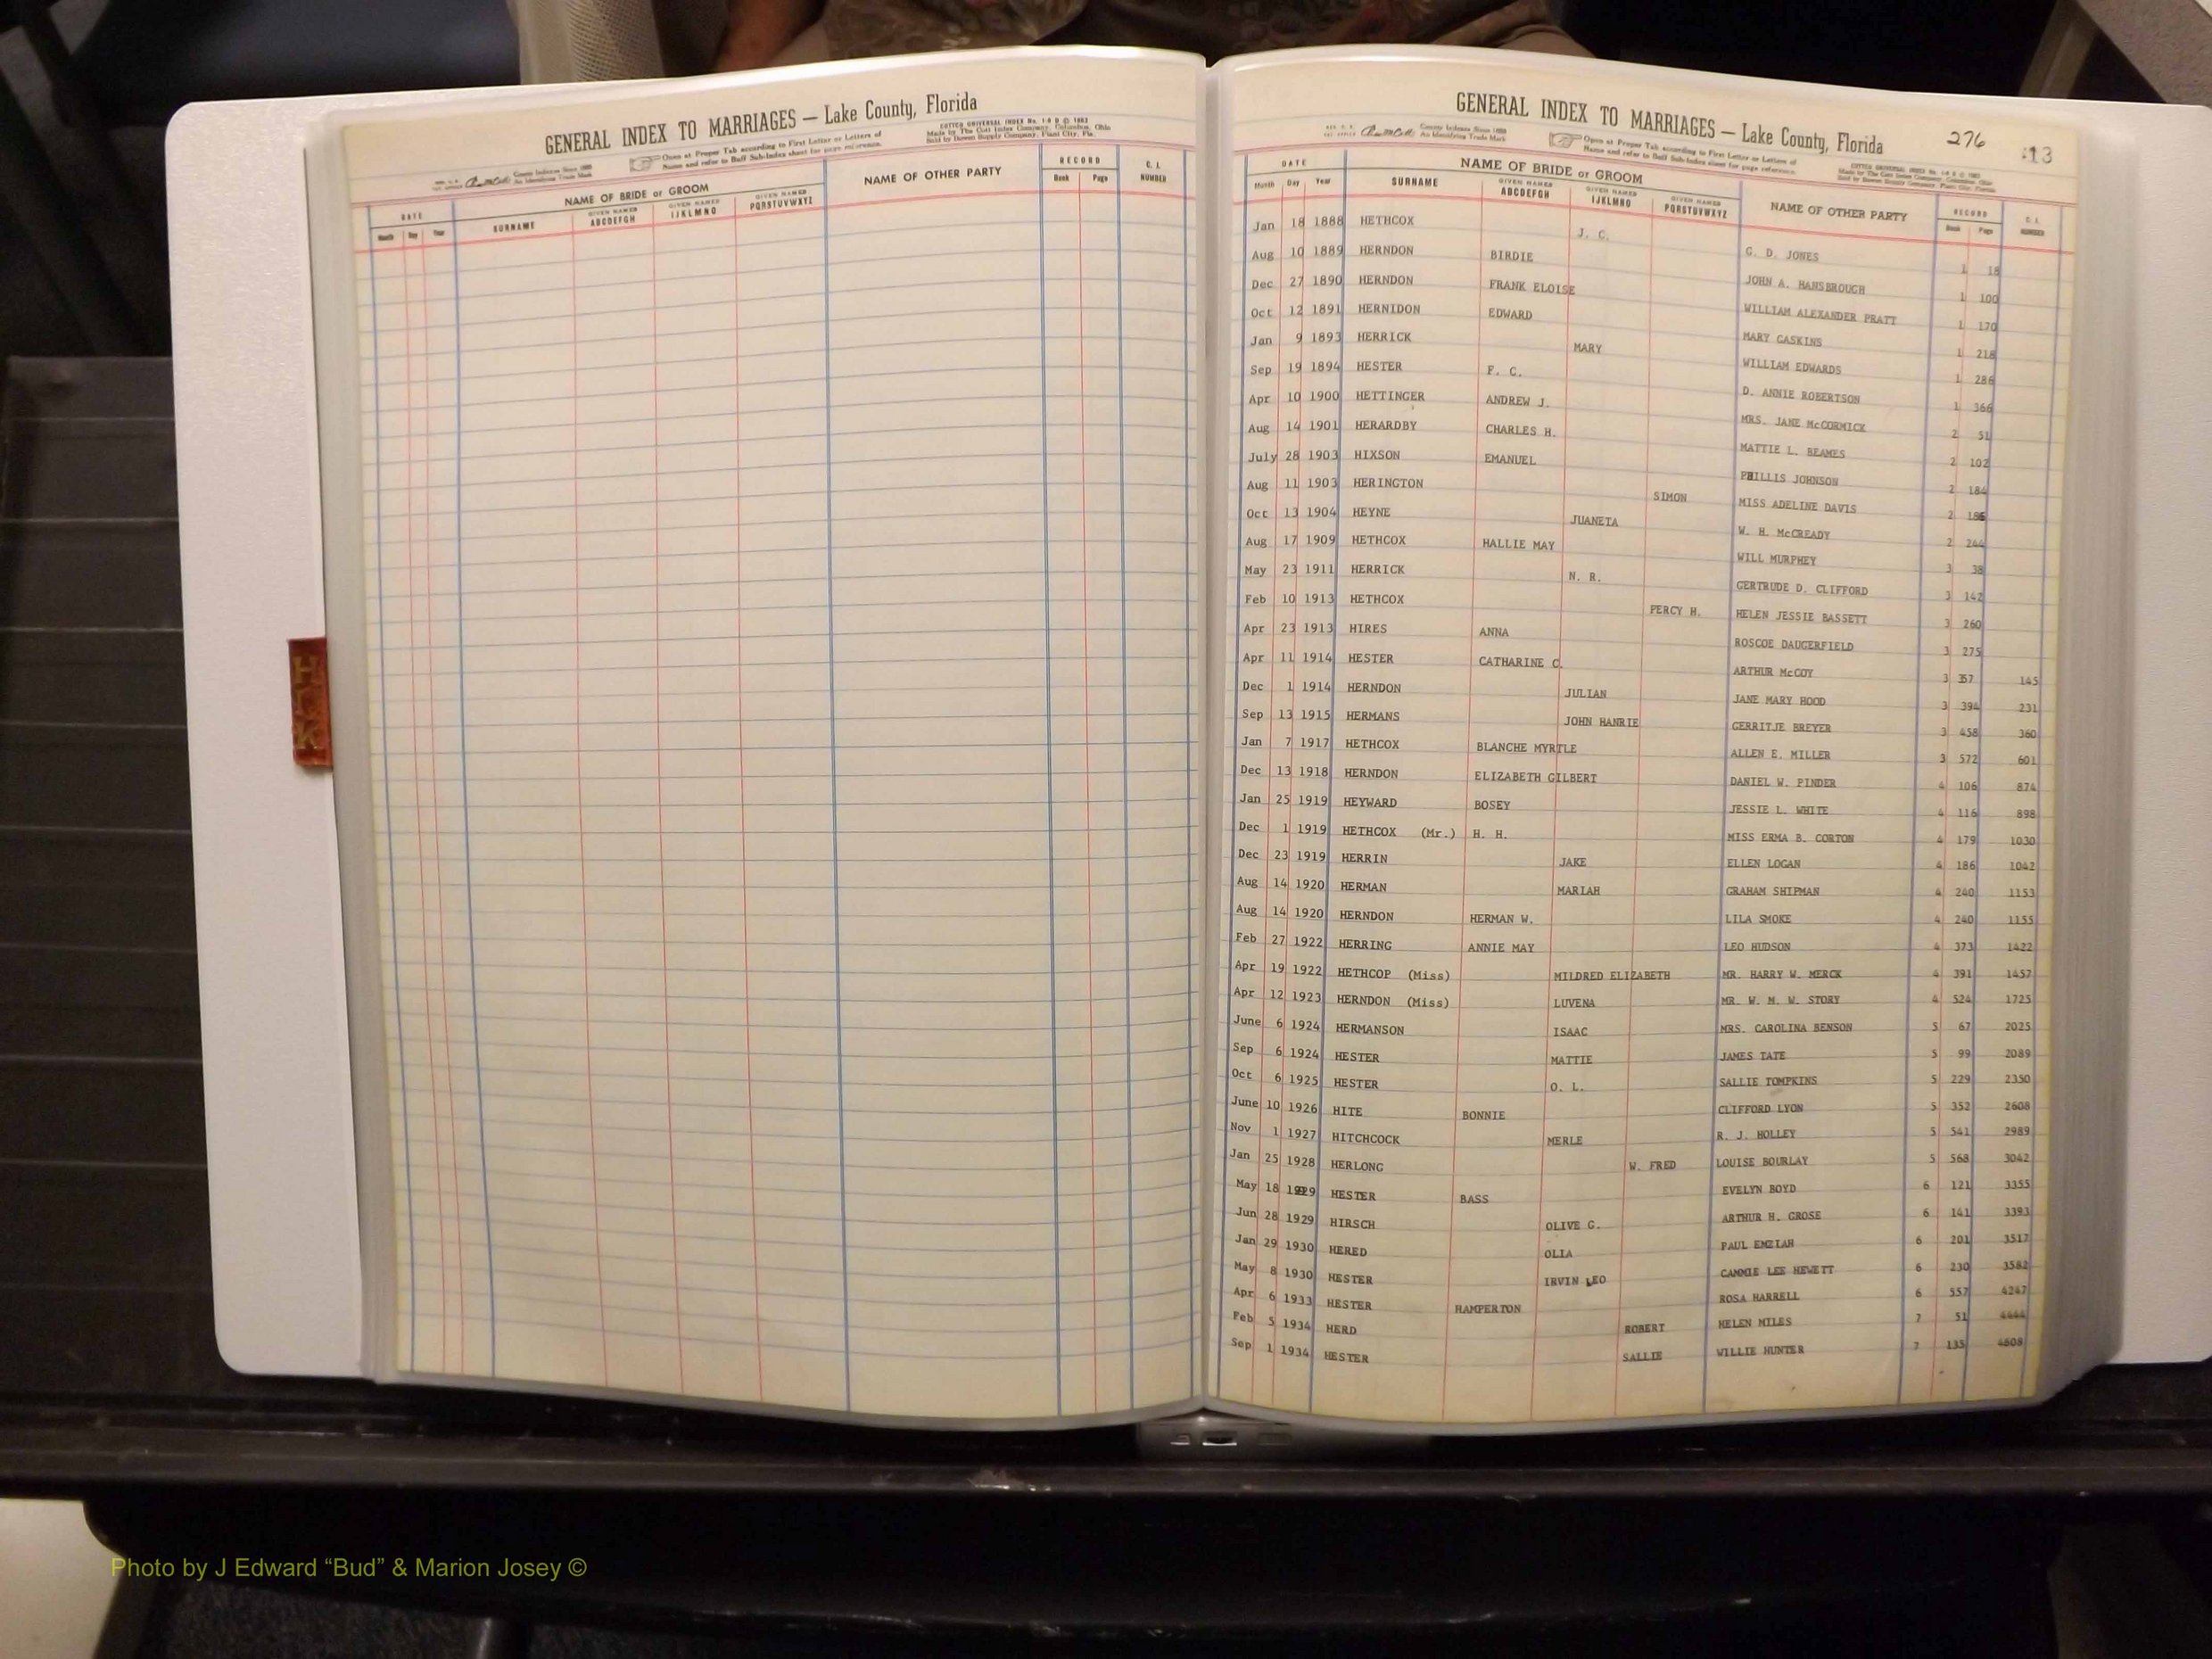 GENERAL INDEX TO MARRIAGES — Lake County, Florida
COTT CO UNIVERSAL INDEX
Made by The Cott Index Company, Columbus, Ohio
Sold by Bowen Supply Company, Plant City, Fla.
County Indexes Since 1888
An Identifying Trade Mark
Open at Proper Tab according to First Letter or Letters of
Name and refer to Buff Sub-Index sheet for page reference.
DATE NAME OF BRIDE or GROOM NAME OF OTHER PARTY RECORD C. I.
Month Day Year SURNAME GIVEN NAMES ABCDEFGH GIVEN NAMES IJKLMNO GIVEN NAMES PQRSTUVWXYZ Book Page NUMBER
HCK
GENERAL INDEX TO MARRIAGES — Lake County, Florida 276 13
County Indexes Since 1888
An Identifying Trade Mark
Open at Proper Tab according to First Letter or Letters of
Name and refer to Buff Sub-Index sheet for page reference.
DATE NAME OF BRIDE or GROOM NAME OF OTHER PARTY RECORD C. I.
Month Day Year SURNAME GIVEN NAMES ABCDEFGH GIVEN NAMES IJKLMNO GIVEN NAMES PQRSTUVWXYZ Book Page NUMBER
Jan 18 1888 HETHCOX J. C. G. D. JONES 1 18
Aug 10 1889 HERNDON BIRDIE JOHN A. HANSBROUGH 1 100
Dec 27 1890 HERNDON FRANK ELOISE WILLIAM ALEXANDER PRATT 1 170
Oct 12 1891 HERNIDON EDWARD MARY GASKINS 1 218
Jan 9 1893 HERRICK MARY WILLIAM EDWARDS 1 286
Sep 19 1894 HESTER F. C. D. ANNIE ROBERTSON 1 366
Apr 10 1900 HETTINGER ANDREW J. MRS. JANE McCORMICK 2 51
Aug 14 1901 HERARDBY CHARLES H. MATTIE L. BEAMES 2 102
July 28 1903 HIXSON EMANUEL PHILLIS JOHNSON 2 184
Aug 11 1903 HERINGTON SIMON MISS ADELINE DAVIS 2 186
Oct 13 1904 HEYNE JUANETA W. H. McCREADY 2 244
Aug 17 1909 HETHCOX HALLIE MAY WILL MURPHEY 3 38
May 23 1911 HERRICK N. R. GERTRUDE D. CLIFFORD 3 142
Feb 10 1913 HETHCOX PERCY H. HELEN JESSIE BASSETT 3 260
Apr 23 1913 HIRES ANNA ROSCOE DAUGERFIELD 3 275
Apr 11 1914 HESTER CATHARINE C. ARTHUR McCOY 3 357 145
Dec 1 1914 HERNDON JULIAN JANE MARY HOOD 3 394 231
Sep 13 1915 HERMANS JOHN HANRIE GERRITJE BREYER 3 458 360
Jan 7 1917 HETHCOX BLANCHE MYRTLE ALLEN E. MILLER 3 572 601
Dec 13 1918 HERNDON ELIZABETH GILBERT DANIEL W. PINDER 4 106 874
Jan 25 1919 HEYWARD BOSEY JESSIE L. WHITE 4 116 898
Dec 1 1919 HETHCOX (Mr.) H. H. MISS ERMA B. CORTON 4 179 1030
Dec 23 1919 HERRIN JAKE ELLEN LOGAN 4 186 1042
Aug 14 1920 HERMAN MARIAH GRAHAM SHIPMAN 4 240 1153
Aug 14 1920 HERNDON HERMAN W. LILA SMOKE 4 240 1155
Feb 27 1922 HERRING ANNIE MAY LEO HUDSON 4 373 1422
Apr 19 1922 HETHCOP (Miss) MILDRED ELIZABETH MR. HARRY W. MERCK 4 391 1457
Apr 12 1923 HERNDON (Miss) LUVENA MR. W. M. W. STORY 4 524 1725
June 6 1924 HERMANSON ISAAC MRS. CAROLINA BENSON 5 67 2025
Sep 6 1924 HESTER MATTIE JAMES TATE 5 99 2089
Oct 6 1925 HESTER O. L. SALLIE TOMPKINS 5 229 2350
June 10 1926 HITE BONNIE CLIFFORD LYON 5 352 2608
Nov 1 1927 HITCHCOCK MERLE R. J. HOLLEY 5 541 2989
Jan 25 1928 HERLONG W. FRED LOUISE BOURLAY 5 568 3042
May 18 1929 HESTER BASS EVELYN BOYD 6 121 3355
Jun 28 1929 HIRSCH OLIVE G. ARTHUR H. GROSE 6 141 3393
Jan 29 1930 HERED OLIA PAUL 6 201 3517
May 8 1930 HESTER IRVIN LEO CANNIE LEE HEWETT 6 230 3582
Apr 6 1933 HESTER HAMPERTON ROSA HARRELL 6 557 4247
Feb 5 1934 HERD ROBERT HELEN MILES 7 51 4444
Sep 1 1934 HESTER SALLIE WILLIE HUNTER 7 135 4608
Photo by J Edward “Bud” & Marion Josey ©